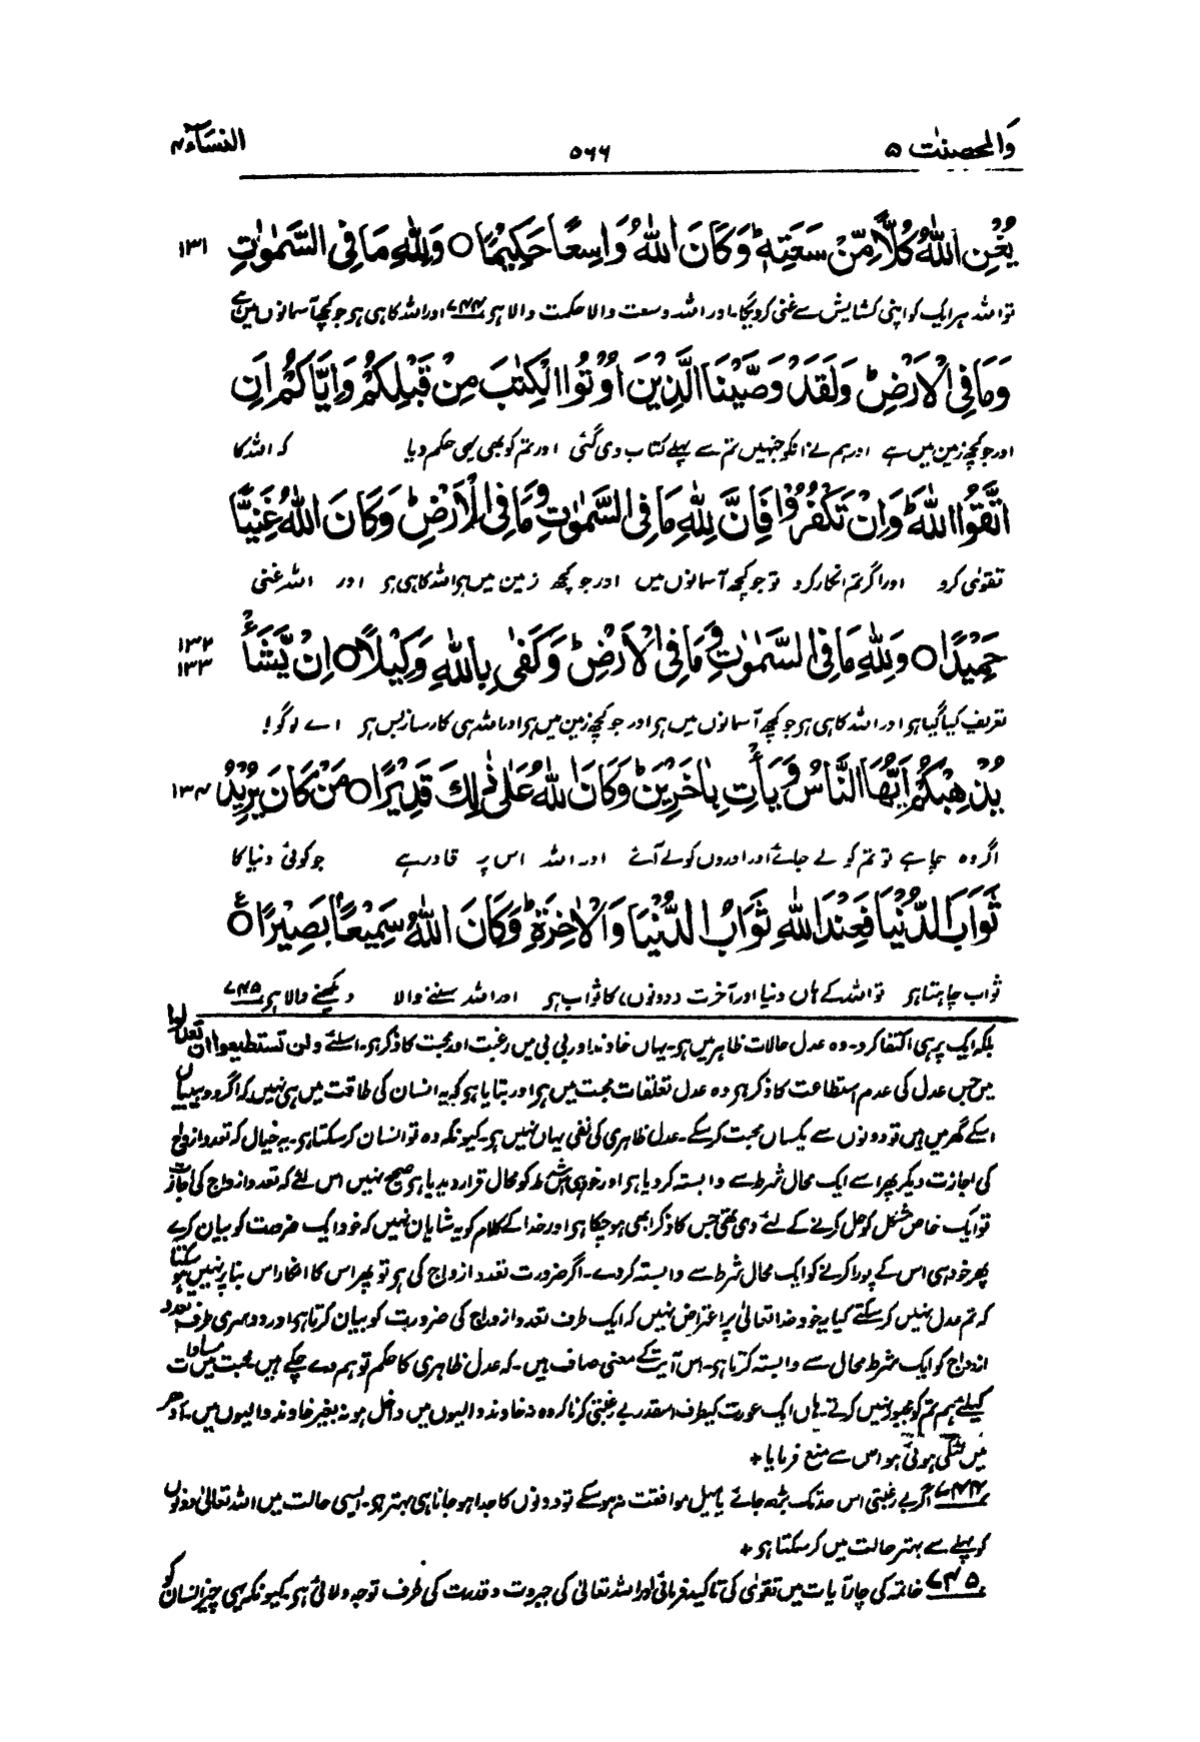 والمحصنٰت ۵ ۵۶۶ النساء ۴
یُغْنِ اللّٰهُ كُلًّا مِّنْ سَعَتِهٖ ؕ وَكَانَ اللّٰهُ وَاسِعًا حَكِیْمًا ○ وَلِلّٰهِ مَا فِی السَّمٰوٰتِ ۱۳۱
تو اللہ ہر ایک کو اپنی کشایش سے غنی کر دیگا۔ اور اللہ وسعت والا حکمت والا ہو ۷۴۴ اور اللہ کا ہی ہو جو کچھ آسمانوں میں ہے
وَمَا فِی الْاَرْضِ ؕ وَلَقَدْ وَصَّیْنَا الَّذِیْنَ اُوْتُوا الْكِتٰبَ مِنْ قَبْلِكُمْ وَاِیَّاكُمْ اَنِ
اور جو کچھ زمین میں ہے اور ہم نے انکو جنہیں تم سے پہلے کتاب دی گئی اور تم کو بھی یہی حکم دیا کہ اللہ کا
اتَّقُوا اللّٰهَ ؕ وَاِنْ تَكْفُرُوْا فَاِنَّ لِلّٰهِ مَا فِی السَّمٰوٰتِ وَمَا فِی الْاَرْضِ ؕ وَكَانَ اللّٰهُ غَنِیًّا
تقویٰ کرو اور اگر تم انکار کرو تو جو کچھ آسمانوں میں اور جو کچھ زمین میں ہو اللہ کا ہی ہو اور اللہ غنی
حَمِیْدًا ○ وَلِلّٰهِ مَا فِی السَّمٰوٰتِ وَمَا فِی الْاَرْضِ ؕ وَكَفٰی بِاللّٰهِ وَكِیْلًا ○ اِنْ یَّشَاْ ۱۳۲ ۱۳۳
تعریف کیا گیا ہو اور اللہ کا ہی ہو جو کچھ آسمانوں میں ہو اور جو کچھ زمین میں ہو اور اللہ ہی کارساز بس ہو اے لوگو!
یُذْهِبْكُمْ اَیُّهَا النَّاسُ وَیَاْتِ بِاٰخَرِیْنَ ؕ وَكَانَ اللّٰهُ عَلٰی ذٰلِكَ قَدِیْرًا ○ مَنْ كَانَ یُرِیْدُ ۱۳۴
اگر وہ چاہے تو تم کو لے جائے اور اوروں کو لے آئے اور اللہ اس پر قادر ہے جو کوئی دنیا کا
ثَوَابَ الدُّنْیَا فَعِنْدَ اللّٰهِ ثَوَابُ الدُّنْیَا وَالْاٰخِرَةِ ؕ وَكَانَ اللّٰهُ سَمِیْعًۢا بَصِیْرًا ○ ع
ثواب چاہتا ہو تو اللہ کے ہاں دنیا اور آخرت (دونوں) کا ثواب ہو اور اللہ سننے والا دیکھنے والا ہو ۷۴۵
بلکہ ایک پر ہی اکتفا کرو۔ وہ عدل حالات ظاہر میں ہو۔ یہاں خاوند اور بی بی میں رغبت اور محبت کا ذکر ہو۔ اسلئے ولن تستطیعوا ان تعدلوا
میں جس عدل کی عدم استطاعت کا ذکر ہو وہ عدل تعلقات محبت میں ہو اور بتایا ہو کہ یہ انسان کی طاقت میں ہی نہیں کہ اگر دو بیبیاں
اسکے گھر میں ہیں تو دونوں سے یکساں محبت کر سکے۔ عدل ظاہری کی نفی یہاں نہیں ہو۔ کیونکہ وہ تو انسان کر سکتا ہو۔ یہ خیال کہ تعدد ازواج
کی اجازت دیکر پھر اسے ایک محال شرط سے وابستہ کر دیا ہو اور خود ہی اس شرط کو محال قرار دیدیا ہو صحیح نہیں اس لئے کہ تعدد ازواج کی اجازت
تو ایک خاص مشکل کو حل کرنے کے لئے دی تھی جس کا ذکر ابھی ہو چکا ہو اور خدا کے کلام کو یہ شایان نہیں کہ خود ایک ضرورت کو بیان کرے
پھر خود ہی اس کے پورا کرنے کو ایک محال شرط سے وابستہ کر دے۔ اگر ضرورت تعدد ازواج کی ہو تو پھر اس کا انکار اس بنا پر نہیں ہو سکتا
کہ تم عدل نہیں کر سکتے کیا یہ خود خدا تعالیٰ پر اعتراض نہیں کہ ایک طرف تعدد ازواج کی ضرورت کو بیان کرتا ہو اور دوسری طرف تعدد
ازواج کو ایک شرط محال سے وابستہ کرتا ہو۔ اس آیت کے معنی صاف ہیں۔ کہ عدل ظاہری کا حکم تو ہم دے چکے ہیں محبت میں مساوات
کیلئے ہم تم کو مجبور نہیں کرتے۔ ہاں ایک عورت کیطرف اسقدر بے رغبتی کرنا کہ وہ نہ خاوند والیوں میں داخل ہو نہ بغیر خاوند والیوں میں۔ ادھر
میں لٹکی ہوئی ہو اس سے منع فرمایا +
۷۴۴ اگر بے رغبتی اس حد تک بڑھ جائے یا میل موافقت نہ ہو سکے تو دونوں کا جدا ہو جانا ہی بہتر ہو۔ ایسی حالت میں اللہ تعالیٰ دونوں
کو پہلے سے بہتر حالت میں کر سکتا ہو +
۷۴۵ خاتمہ کی چار آیات میں تقویٰ کی تاکید فرمائی اور اللہ تعالیٰ کی جبروت و قدرت کی طرف توجہ دلائی ہو کیونکہ یہی چیز انسان کو